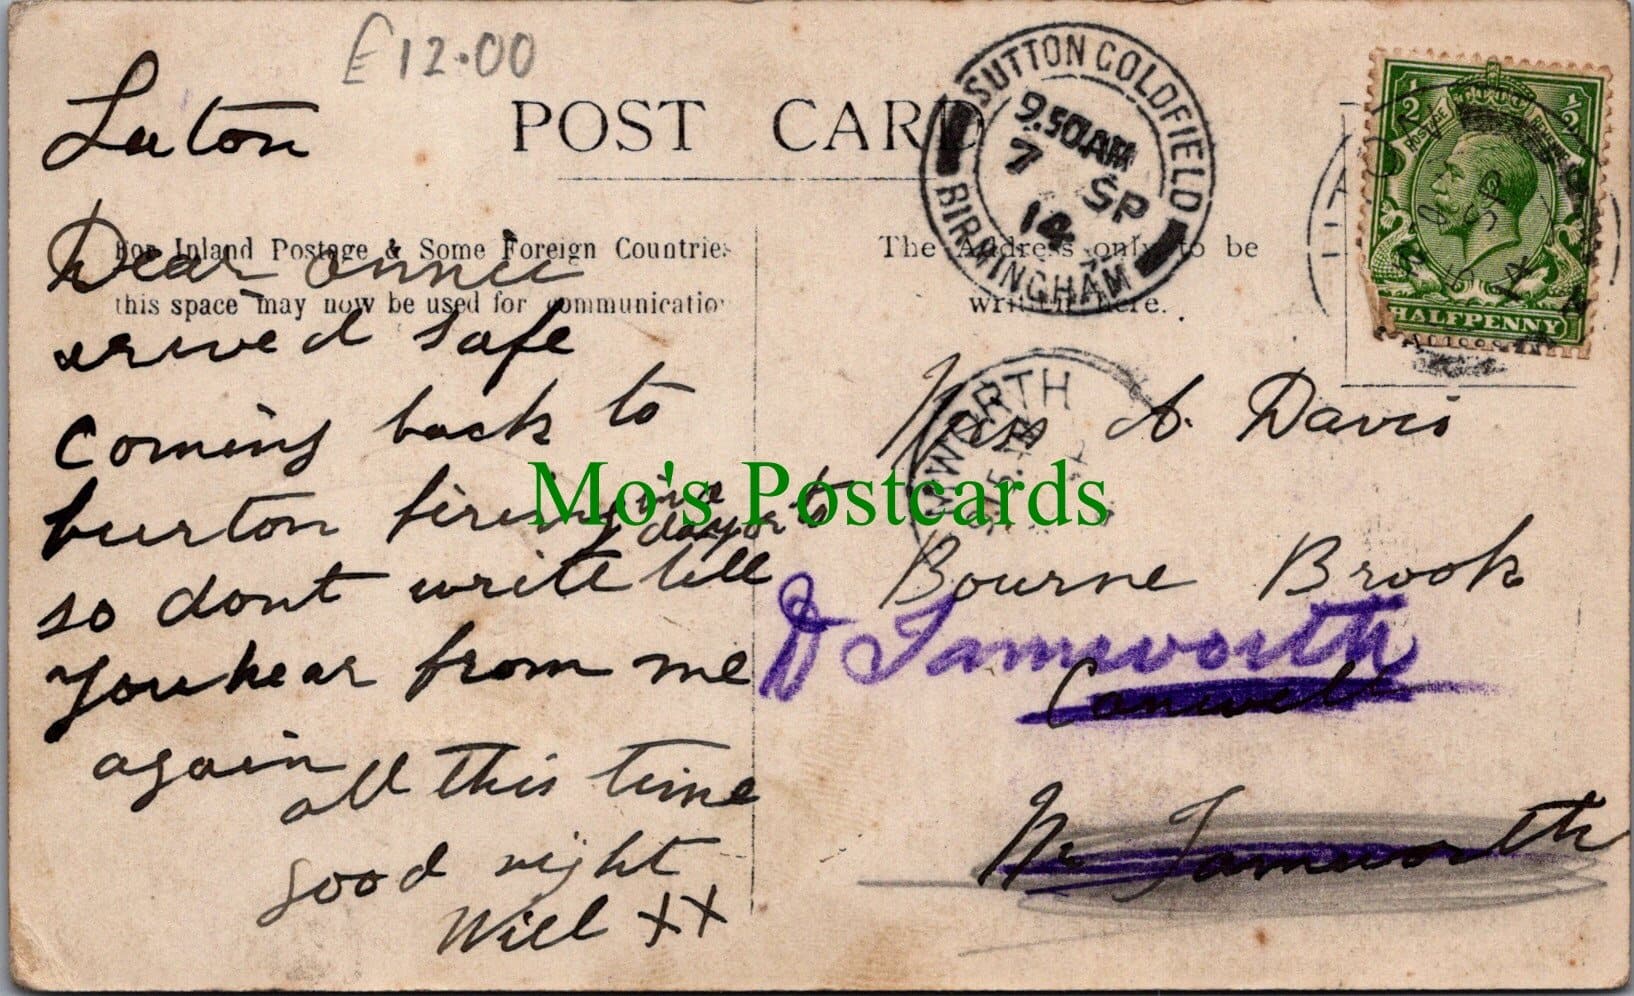 £12.00
Luton
POST CARD
For Inland Postage & Some Foreign Countries
this space may now be used for communication
The Address only to be
written here.
SUTTON COLDFIELD
9.50AM
7 SP
14
BIRMINGHAM
1/2 1/2
POSTAGE REVENUE
HALFPENNY
Dear annie
arived safe
Coming back to
burton firing
in a
day or to
so dont write till
you hear from me
again
all this time
good night
Will XX
MWORTH
Miss A. Davis
Bourne Brook
Tamworth
Canwell
Nr Tamworth
Mo's Postcards